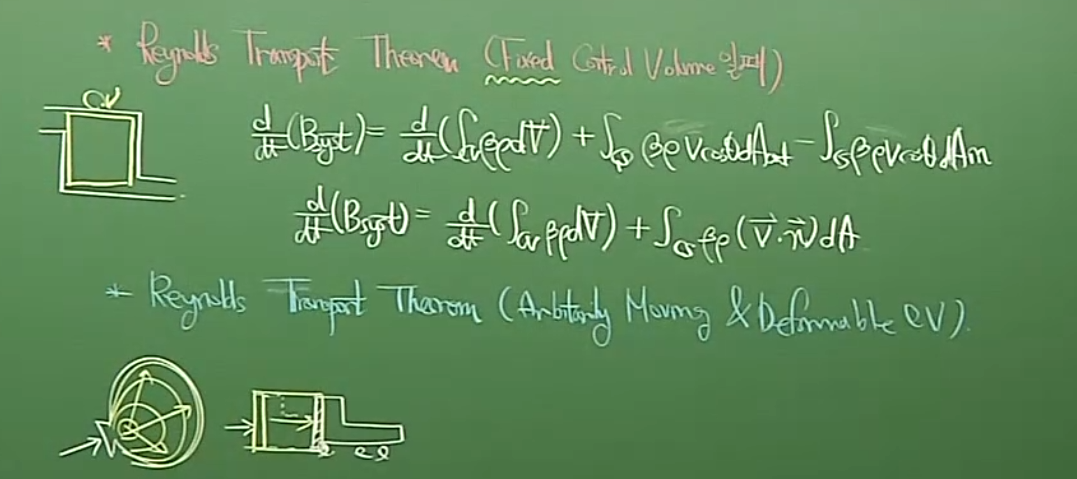 * Reynolds Transport Theorem (Fixed Control Volume 일때)
CV
d/dt(Bsyst) = d/dt(∫cv βρdV) + ∫cs βρVcosθdAout - ∫cs βρVcosθdAin
d/dt(Bsyst) = d/dt(∫cv βρdV) + ∫cs βρ(V⃗·n⃗)dA
* Reynolds Transport Theorem (Arbitrarly Moving & Deformable CV).